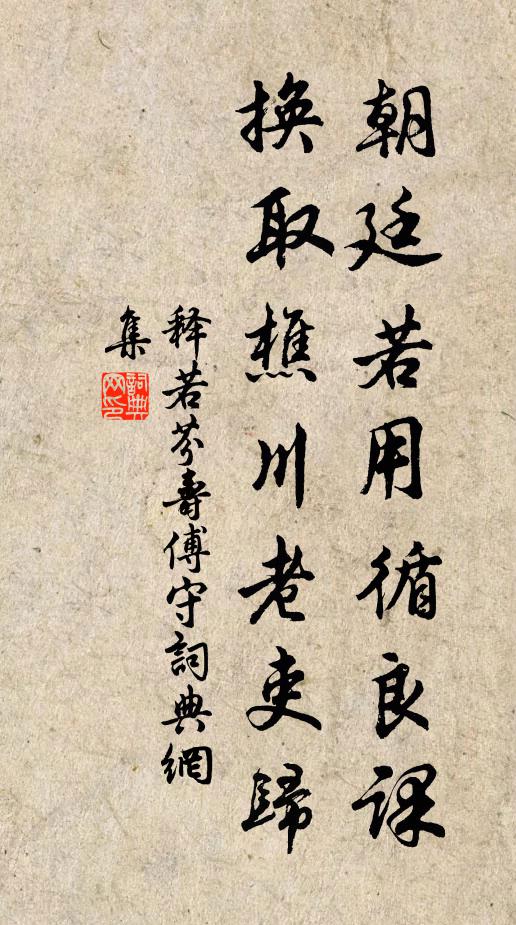 朝廷若用循良課
換取樵川老吏歸
释若芬壽傅守詞典網
集
詞典
网印